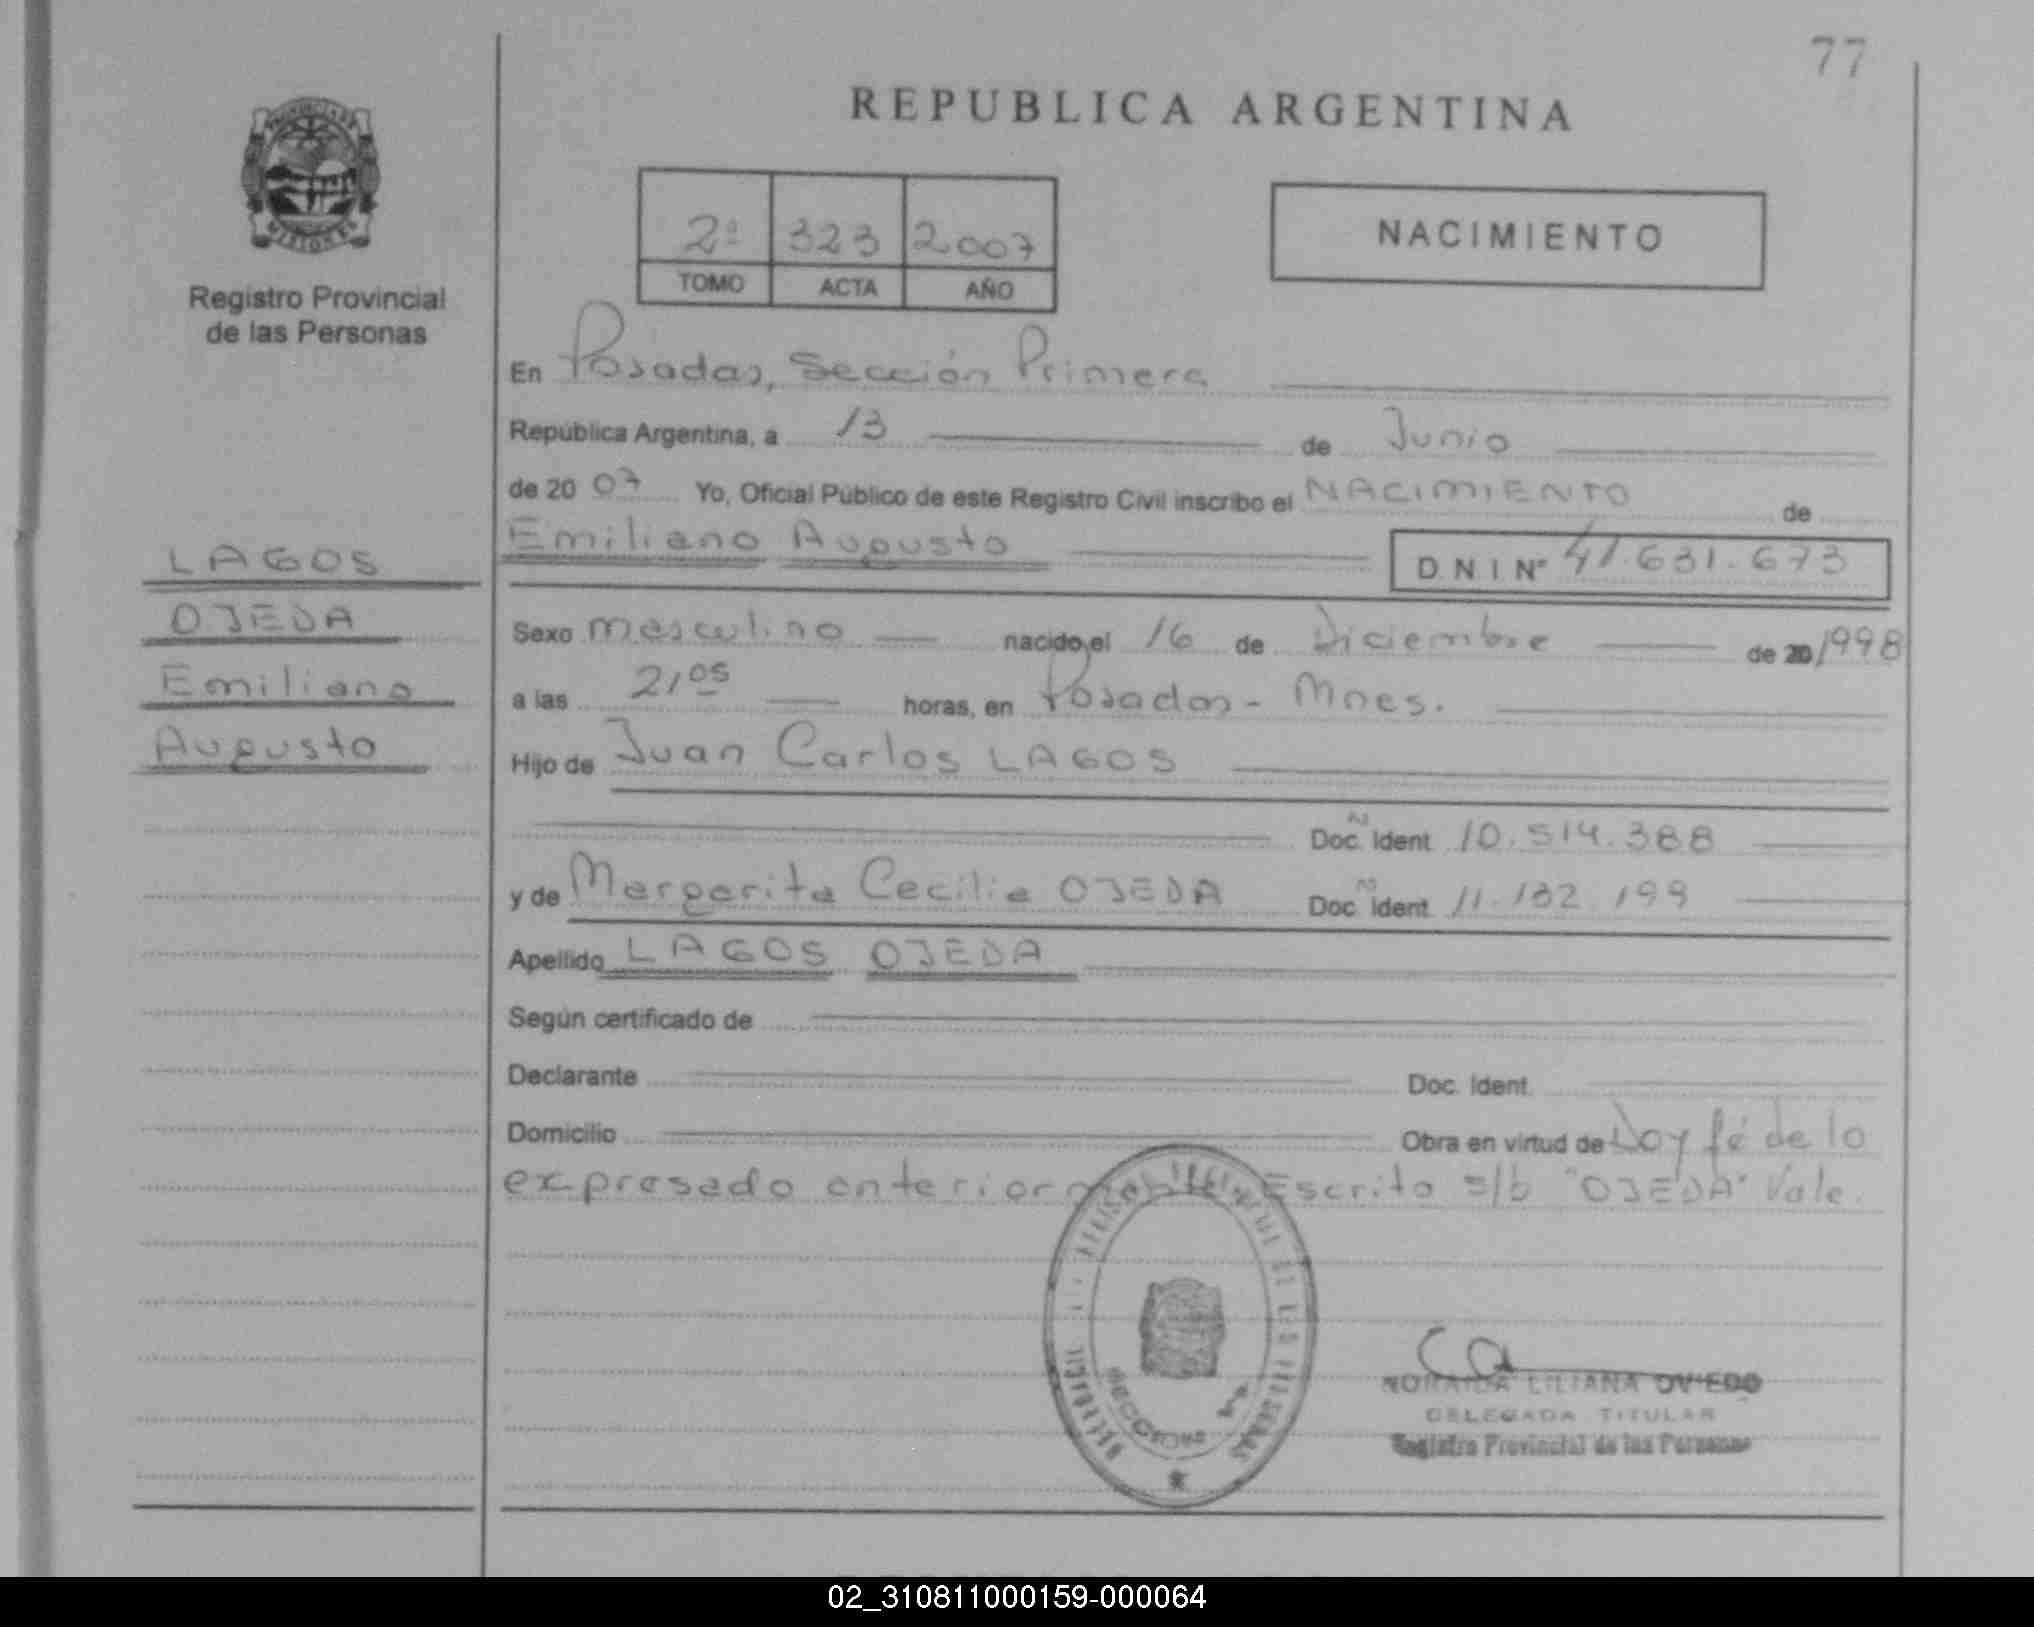 77
REPUBLICA ARGENTINA
PROVINCIA DE
MISIONES
Registro Provincial
de las Personas
2º 323 2007
TOMO ACTA AÑO
NACIMIENTO
En Posadas, Sección Primera
República Argentina, a 13 de Junio
de 20 07 Yo, Oficial Público de este Registro Civil inscribo el NACIMIENTO de
Emiliano Augusto D N I Nº 41.631.673
LAGOS
OJEDA
Emiliano
Augusto
Sexo masculino nacido el 16 de Diciembre de 20 1998
a las 21 05 horas, en Posadas - Mnes.
Hijo de Juan Carlos LAGOS
Doc. Ident 10.514.388
y de Margarita Cecilia OJEDA Doc. Ident. 11.132.199
Apellido LAGOS OJEDA
Según certificado de
Declarante Doc. Ident.
Domicilio Obra en virtud de Doy fé de lo
expresado anteriormente Escrito s/b "OJEDA" Vale.
LILIANA OVIEDO
DELEGADA TITULAR
Registro Provincial de las Personas
02_310811000159-000064